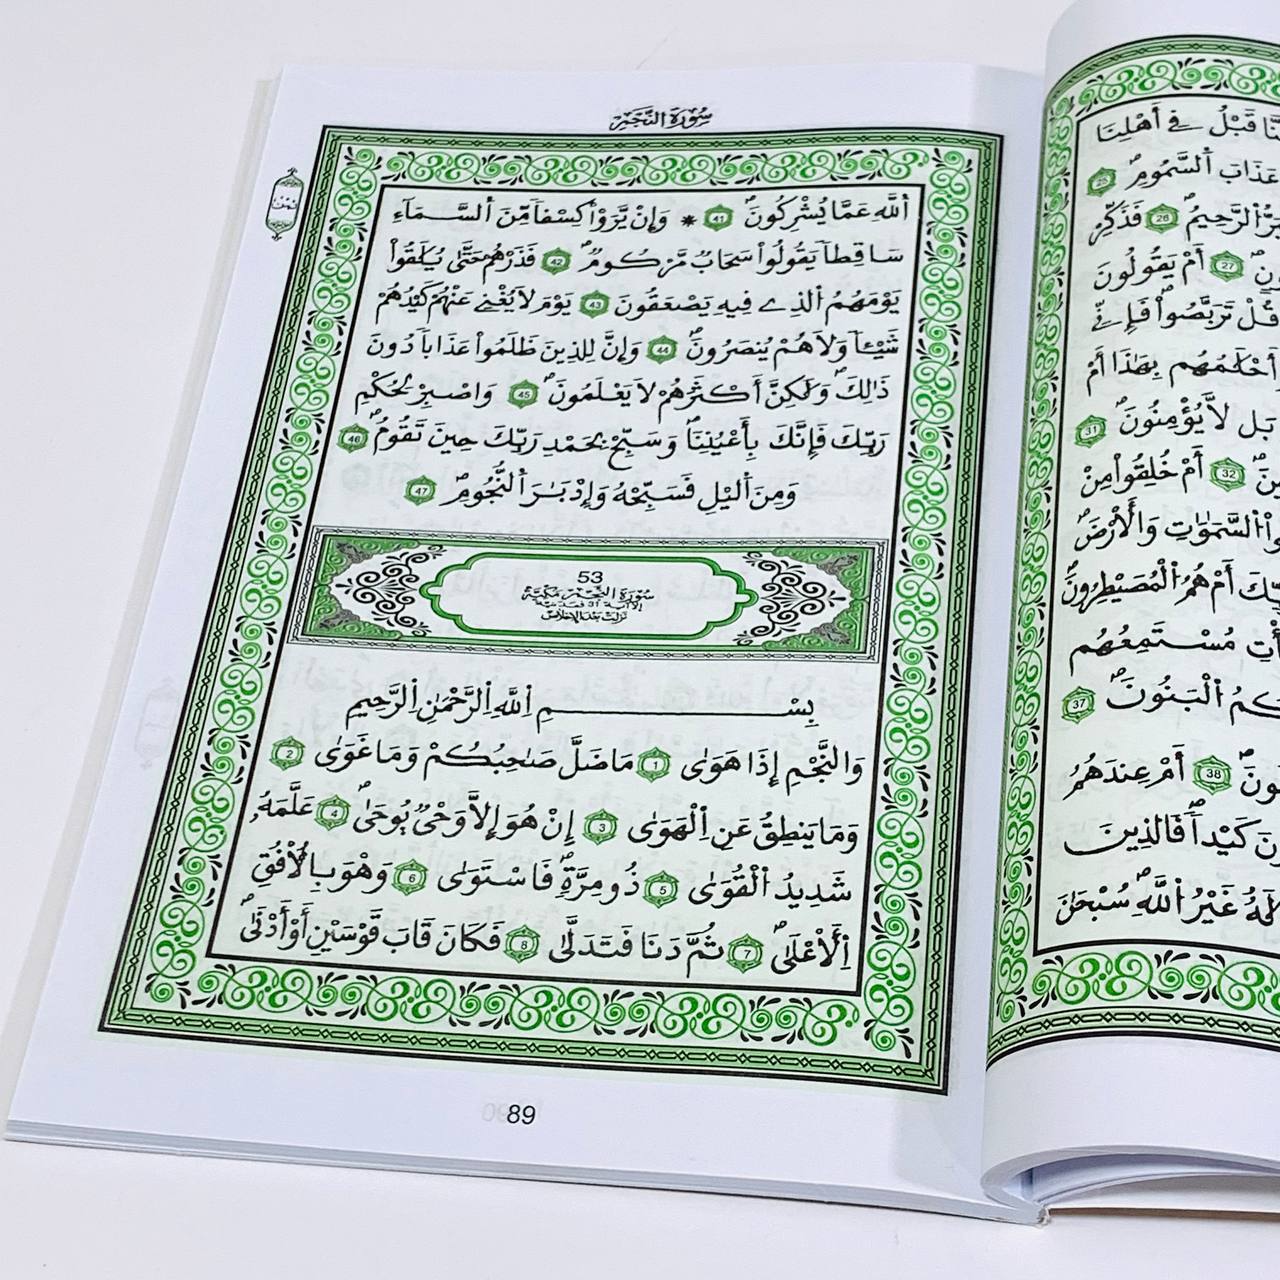 سُورَةُ النَّجْمِ
ثُمُن
اَللَّهِ عَمَّا يُشْرِكُونَ 41 * وَإِنْ يَّرَوْاْ كِسْفاً مِّنَ اَلسَّمَآءِ
سَاقِطاً يَقُولُواْ سَحَابٌ مَّرْكُومٌ 42 فَذَرْهُمْ حَتَّىٰ يُلَٰقُواْ
يَوْمَهُمُ اُلذِے فِيهِ يَصْعَقُونَ 43 يَوْمَ لَا يُغْنِے عَنْهُمْ كَيْدُهُمْ
شَيْـٔاً وَلَا هُمْ يُنصَرُونَ 44 وَإِنَّ لِلذِينَ ظَلَمُواْ عَذَاباً دُونَ
ذَٰلِكَ وَلَٰكِنَّ أَكْثَرَهُمْ لَا يَعْلَمُونَ 45 وَاصْبِرْ لِحُكْمِ
رَبِّكَ فَإِنَّكَ بِأَعْيُنِنَا وَسَبِّحْ بِحَمْدِ رَبِّكَ حِينَ تَقُومُ 46
وَمِنَ اَليْلِ فَسَبِّحْهُ وَإِدْبَٰرَ اَلنُّجُومِ 47
53
سُورَةُ النَّجْمِ مَكِّيَّة
إلا آية 31 فمدنية
نزلت بعد الإخلاص
بِسْمِ اِللَّهِ اِلرَّحْمَٰنِ اِلرَّحِيمِ
وَالنَّجْمِ إِذَا هَوَىٰ 1 مَا ضَلَّ صَٰحِبُكُمْ وَمَا غَوَىٰ 2
وَمَا يَنطِقُ عَنِ اِلْهَوَىٰ 3 إِنْ هُوَ إِلَّا وَحْيٌ يُوحَىٰ 4 عَلَّمَهُۥ
شَدِيدُ اُلْقُوَىٰ 5 ذُو مِرَّةٍ فَاسْتَوَىٰ 6 وَهُوَ بِالُافُقِ
اِلَاعْلَىٰ 7 ثُمَّ دَنَا فَتَدَلَّىٰ 8 فَكَانَ قَابَ قَوْسَيْنِ أَوَ اَدْنَىٰ
89
قَبْلُ فِے أَهْلِنَا
عَذَابَ اَلسَّمُومِ 25
اُلرَّحِيمُ 26 فَذَكِّرْ
27 أَمْ يَقُولُونَ
قُلْ تَرَبَّصُواْ فَإِنِّے
أَحْلَٰمُهُم بِهَٰذَا أَمْ
بَل لَّا يُؤْمِنُونَ 31
32 أَمْ خُلِقُواْ مِنْ
اُلسَّمَٰوَٰتِ وَالْأَرْضَ
أَمْ هُمُ اُلْمُصَيْطِرُونَ
مُسْتَمِعُهُم
اُلْبَنُونَ 37
38 أَمْ عِندَهُمُ
كَيْداً فَالذِينَ
غَيْرُ اُللَّهِ سُبْحَٰنَ